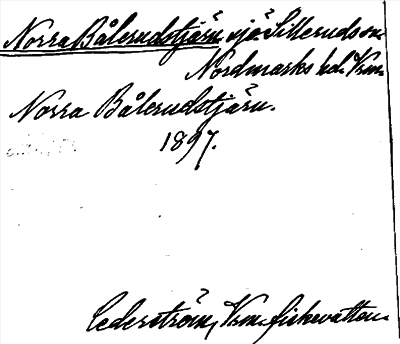 Norra Bålerudstjärn sjö Silleruds sn.
Nordmarks hd. Vrm.
Norra Bålerudstjärn.
1897.
Cederström, Vrm. fiskevatten.